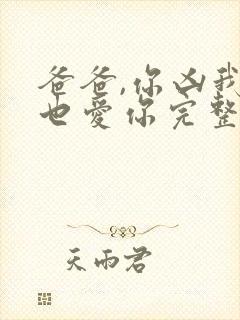 爸爸,你凶我
也爱你完整
天雨君